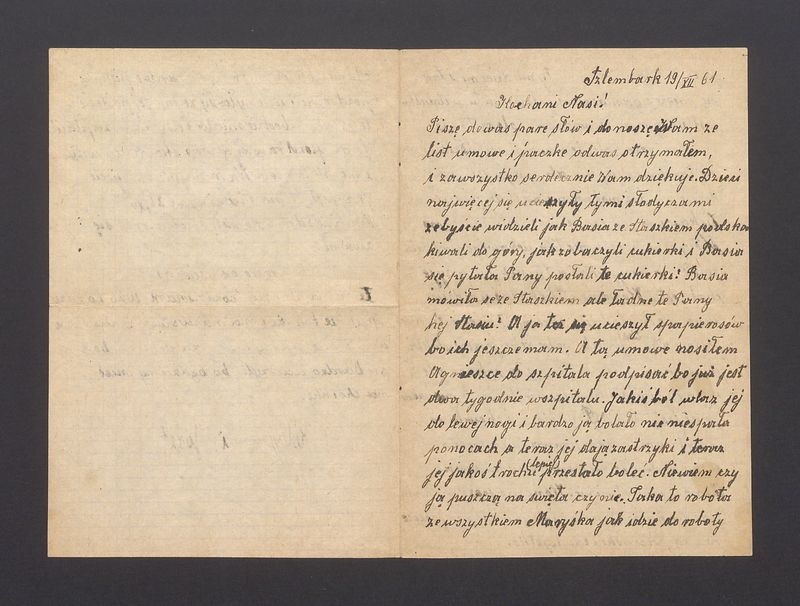 Szlembark 19/XII 61
Kochani Nasi!
Piszę dowas pare słów i donoszę Wam ze
list umowe i paczke odwas otrzymałem,
i zawszystko serdecznie Wam dziękuje. Dzieci
najwięcej się ucieszyły tymi słodyczami
zebyście widzieli jak Basia ze Staszkiem podska
kiwali do góry, jak zobaczyli cukierki i Basia
się pytała Pany posłali te cukierki? Basia
mówiła seze Staszkiem ale ładne te Pany
hej Stasiu! A ja też się ucieszył spapierosów
bo ich jeszcze mam. A tą umowe nosiłem
Agnieszce do szpitala podpisać bo już jest
dwa tygodnie wszpitalu. Jakiś ból wlaz jej
do lewej nogi i bardzo ją bolało nic niespała
ponocach a teraz jej dają zastrzyki i teraz
jej jakoś trochi (lepiej) przestało boleć. Niewiem czy
ją puszczą na święta czy nie. Taka to robota
ze wszystkiem Maryśka jak idzie do roboty